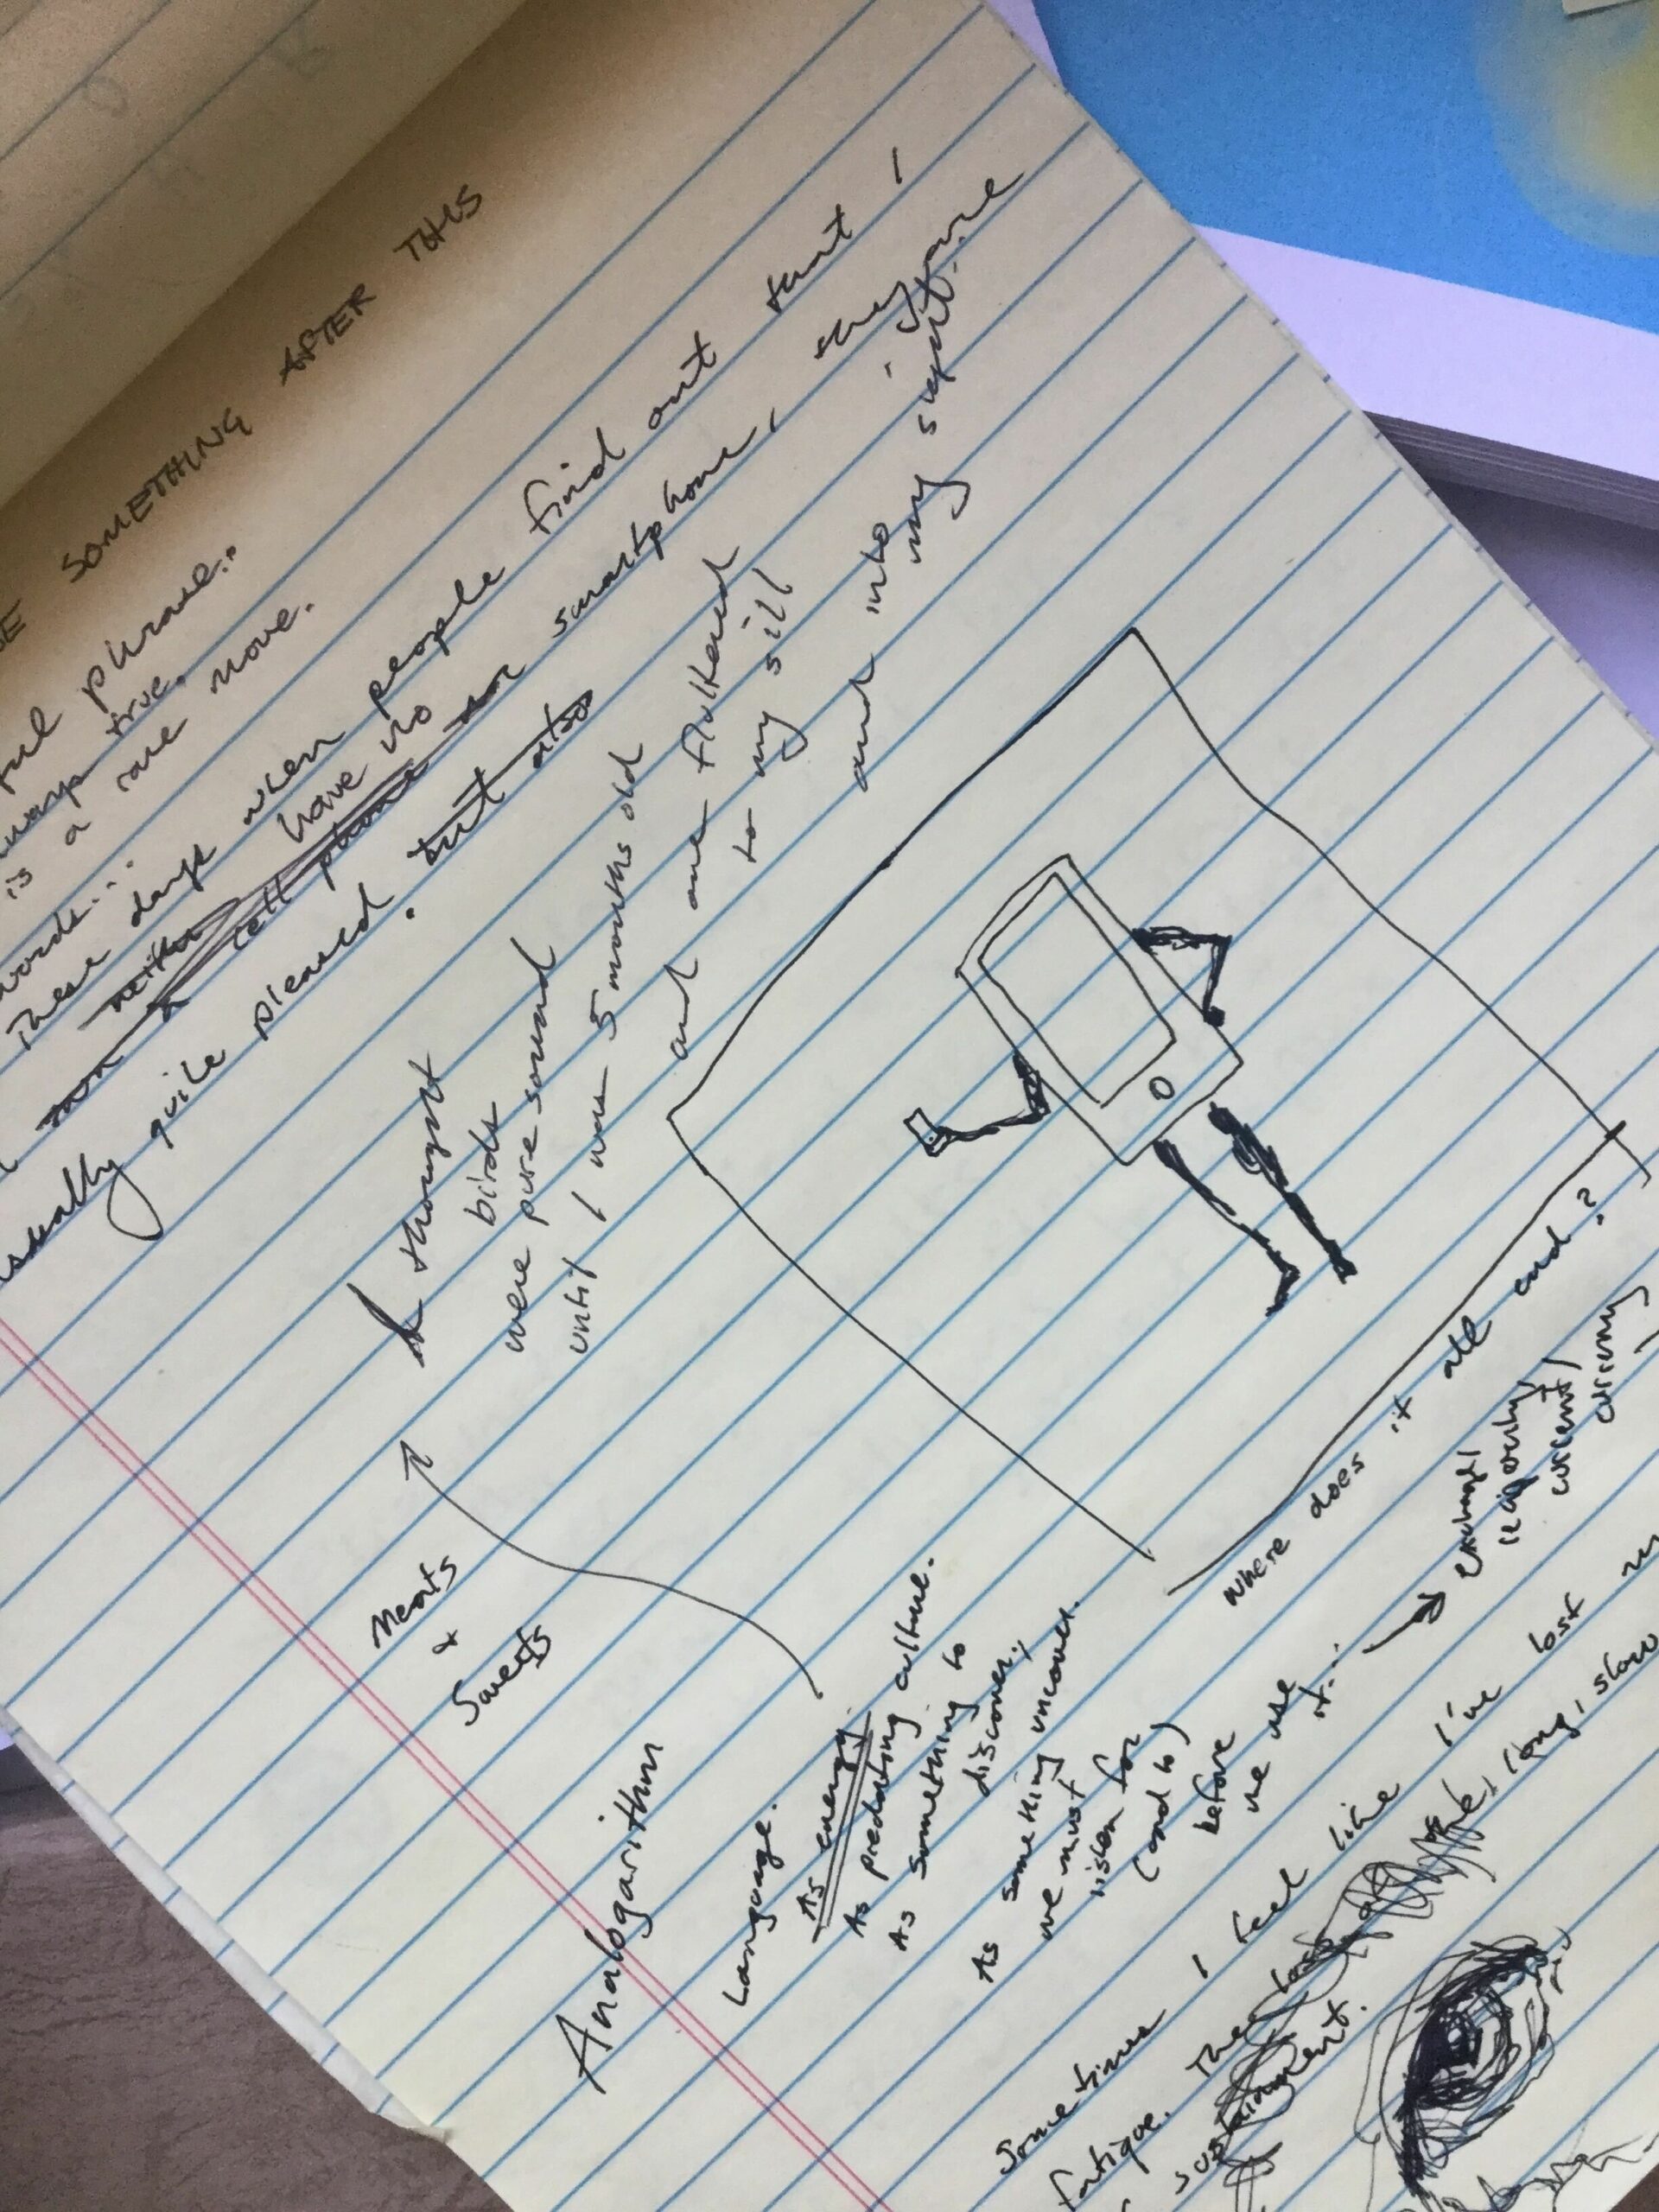 SOMETHING AFTER THIS
phrase..
true.
is a rare move.
words...
These days when people find out that I
have no smartphone, they're
cell phone
quite pleased. but also
I thought
birds
were pure sound
until I was 5 months old
and one fluttered
to my sill
and into
my sight.
Meats
+
Sweets
Analogarithm
Language.
As energy.
As predating culture.
As something to
discover.
As something uncover.
we must
listen for
(and to)
before
we use
it...
where does it all end?
current/
currency
Sometimes I feel like I've lost
fatigue. The long, slow
sustainment.